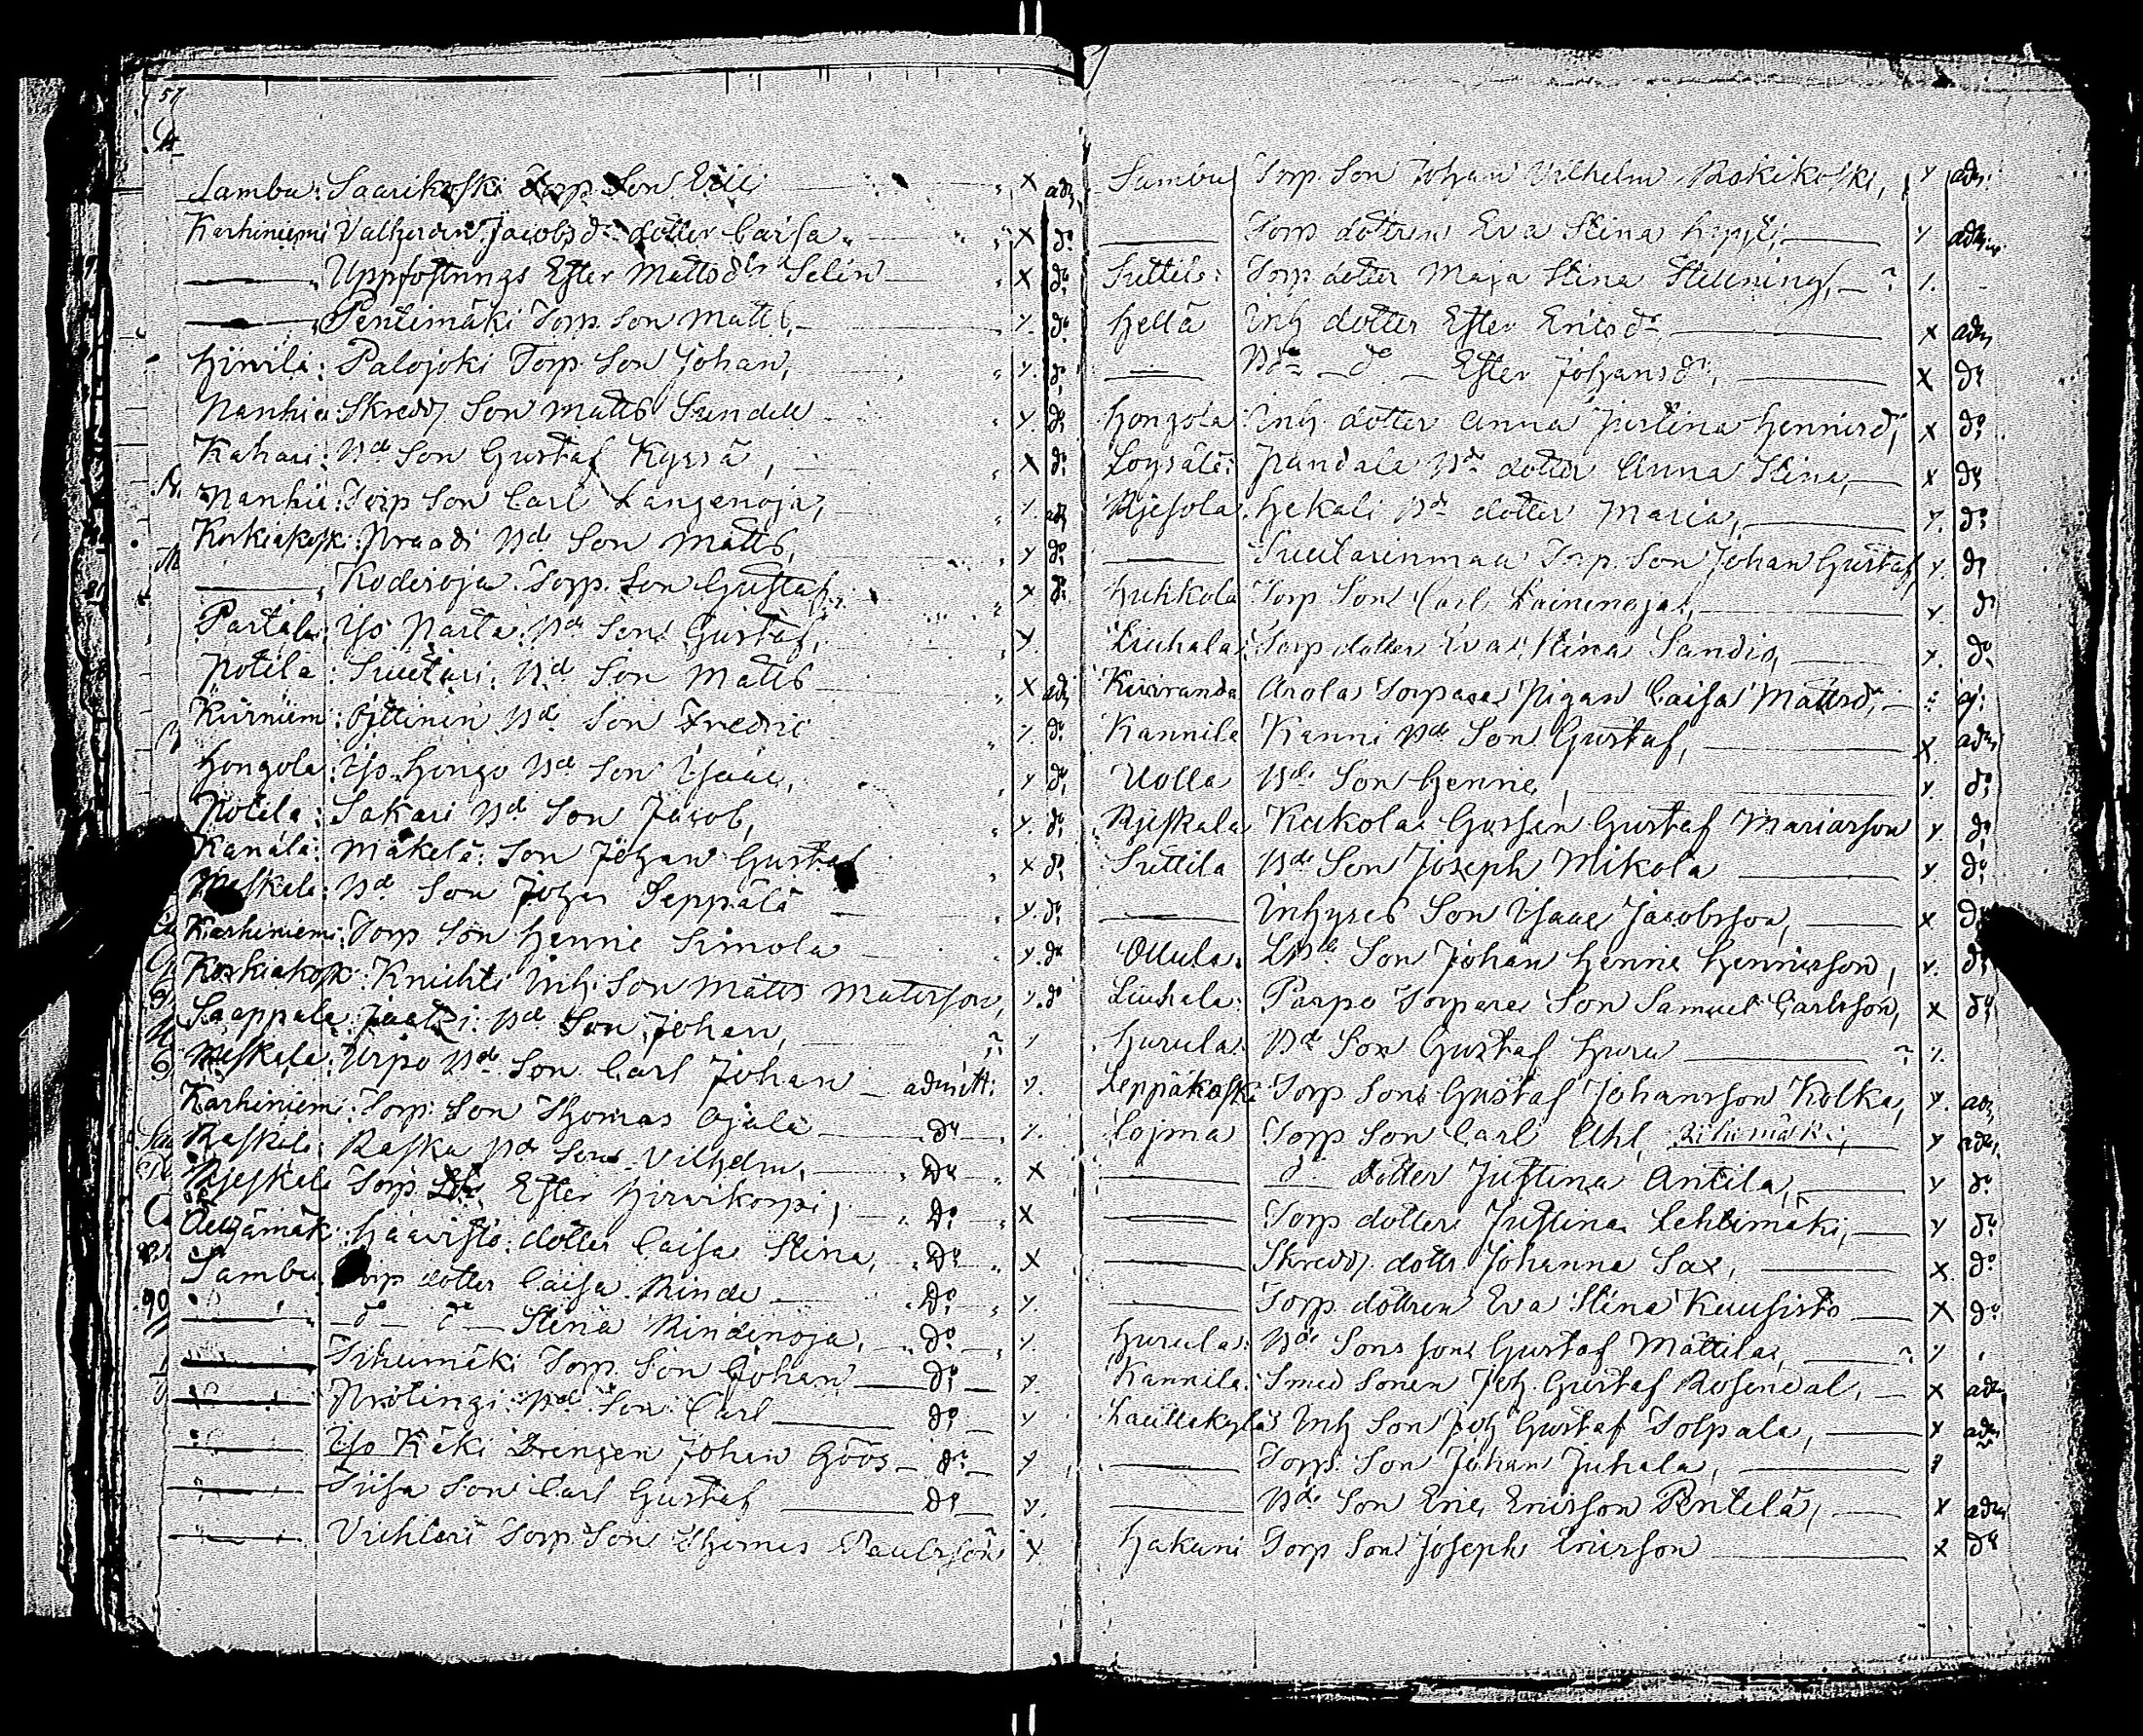 Sambu: Saarikoski Torp. Son Erik x adm
Karhiniemi Valkeroin Jacobsdr dotter Caisa x do
Uppfostrings Ester Mattsdr Selin x do
Pentimäki Torp. Son Matts, x. do
Hirvilä: Palojoki Torp. Son Johan, x. do
Nanhia Skredd. Son Matts Sundell x. do
Kahari: Bd Son Gustaf Kyrsä, x do
Nanhia: Torp Son Carl Langenoja, x. adm
Koskiakosk: Praadi Bd Son Matts, x do
Koderoja Torp. Son Gustaf, x do
Partala: Yso Parta Bd Son Gustaf, x.
Potila: Suutari: Bd Son Matts x adm
Kurniem: Ojttinen Bd Son Fredric x. do
Hongola: Yso Hongo Bd Son Isaac, x do
Potila: Sakari Bd Son Jacob, x. do
Kanala: Mäkelä: Son Johan Gustaf x do
Meskala: Bd Son Johan Seppälä x. do
Karhiniemi: Torp Son Henric Simola x. do
Koskiakosk: Knichti Inh: Son Matts Mattsson, x. do
Saappala: Jaatzi: Bd Son Johan, ? x
Meskala: Urpo Bd Son Carl Johan admitt: x.
Karhiniemi: Torp: Son Thomas Ojala do x.
Raskala: Raska Bd Son Vilhelm, do x
Rjeskala Torp Ester Hirvikorpi, do x
Äeujämäk: Haavisto: dotter Caisa Stina, do x
Sambu Torp dotter Caisa Rinde do x.
do do Stina Rindenoja, do x
Tihumäki Torp. Son Johan do x.
Prötingi: Bd Son Carl do x
Yso Käki Drengen Johan Göös do x
Tiisa Son Carl Gustaf do x.
Vichteri Torp Son Thomas Paulsson x
Sambu Torp. Son Johan Vilhelm Koskikoski, x adm.
Torp dottren Eva Stina Hyyti, x adm
Suttila: Torp. dotter Maja Stina Stellning, ? x.
Hellä Inh dotter Ester Ericsdr x adm
Bde do Ester Johansdr, x do
Hongola: Inh dotter Anna Justina Henricsdr, x do
Loysälä: Jundala Bde dotter Anna Stina, x do
Rjesola: Hekali Bde dotter Maria, x. do
Suutarinmaa Torp. Son Johan Gustaf, x. do
Huhkola Torp Son Carl Laininoja, x. do
Liuhala: Torp dotter Eva Stina Sandio, x. do
Kuiranda Arola Torpare Pigan Caisa Mattsdr,
Kannila Kanni Bde Son Gustaf, x adm
Uolla Bd: Son Henric, x. do
Rjeskala Kukola Gossen Gustaf Mariasson x do
Suttila Bde Son Joseph Mikola x do
Inhyses Son Isaac Jacobsson, x do
Ollula: Son Johan Henric Henricsson, x. do
Liuhala: Parpo Torpare Son Samuel Carlsson, x do
Hurula: Bd Son Gustaf Huru ? x.
Leppäkoski Torp Son Gustaf Johansson Kolka, x. adm
Lojma Torp Son Carl Uhl, Riihimäki, x adm.
do dotter Justina Antila, x do
Torp dotter Justina Lehtimäki, x do
Skredd. dottr Johanna Sax, x. do
Torp. dottren Eva Stina Kuusisto x do
Hurula: Bde Sons son Gustaf Mattila, ? x
Kannila: Smed Sonen Joh. Gustaf Rosendal, x adm
Lauttakylä Inh Son Joh Gustaf Tolpala, x adm
Torp. Son Johan Juhala, x
Bde Son Eric Ericsson Pentilä, x adm
Hakuni Torp Son Joseph Ericsson x do